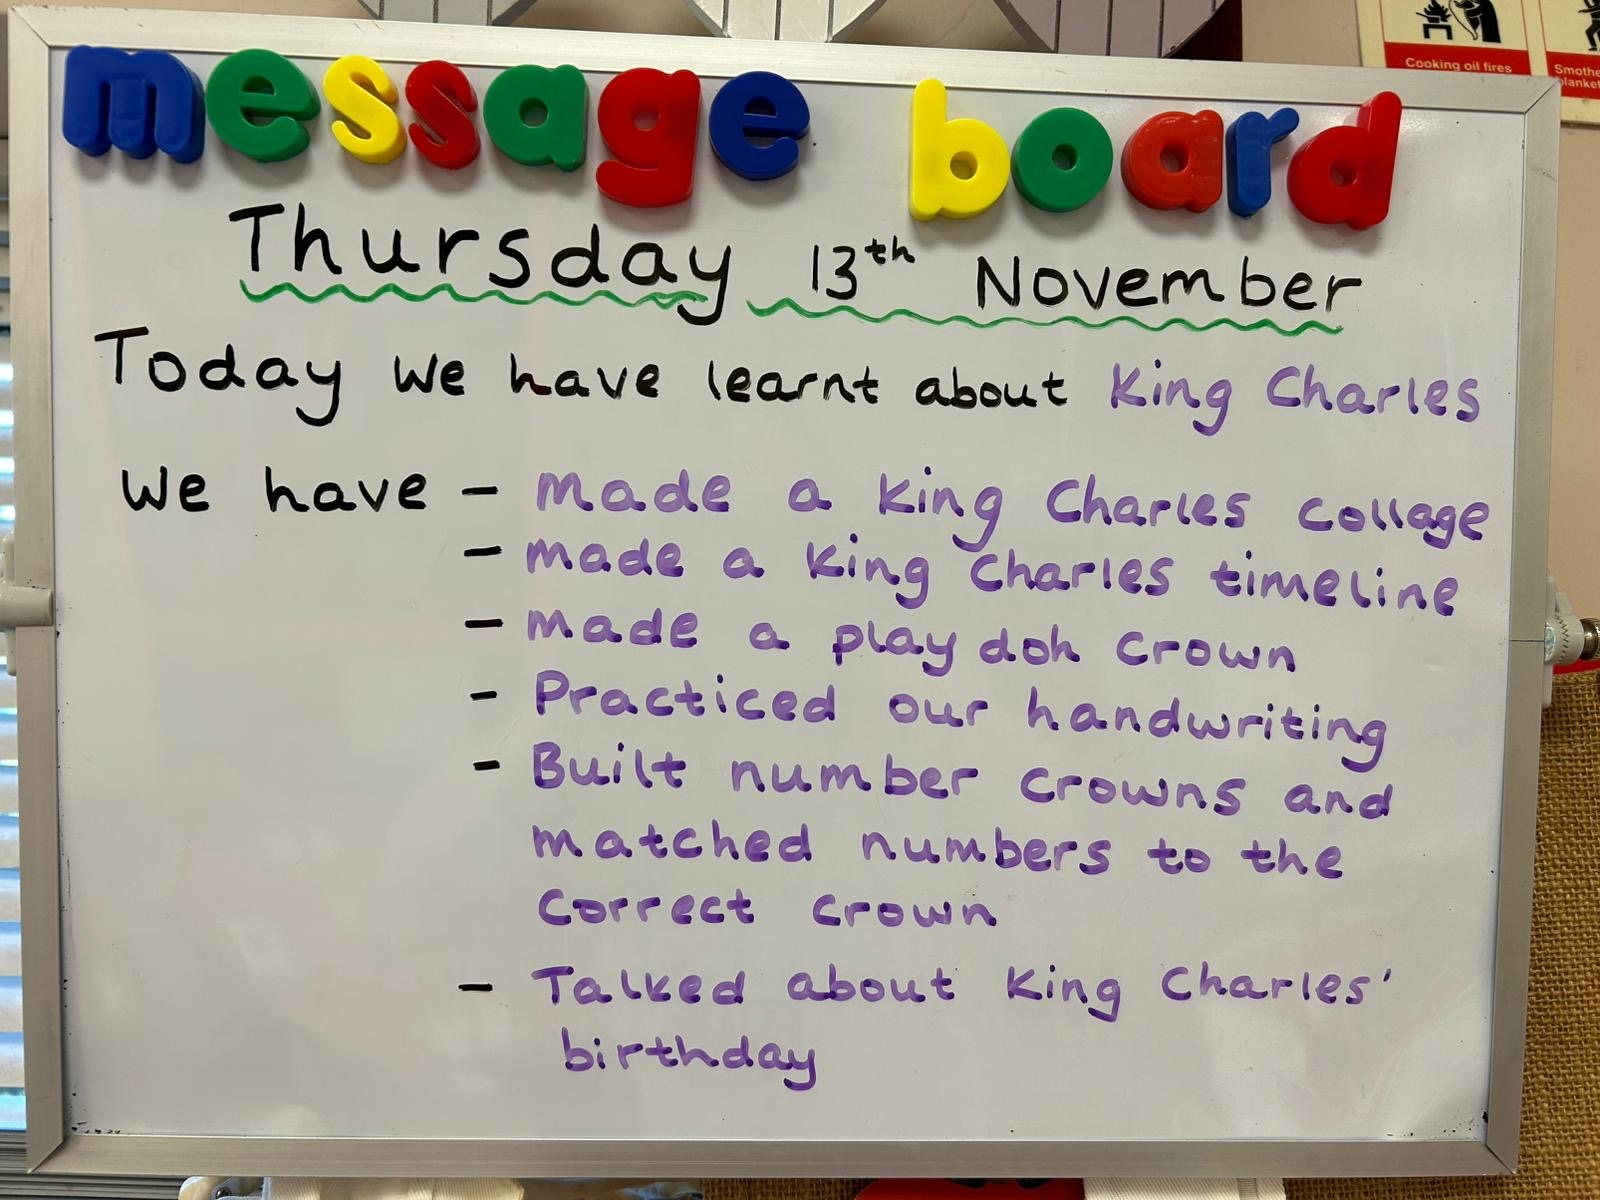 message board
Thursday 13th November
Today we have learnt about King Charles
We have - made a King Charles collage
- made a King Charles timeline
- made a play doh crown
- Practiced our handwriting
- Built number crowns and
matched numbers to the
correct crown
- Talked about King Charles'
birthday
Cooking oil fires